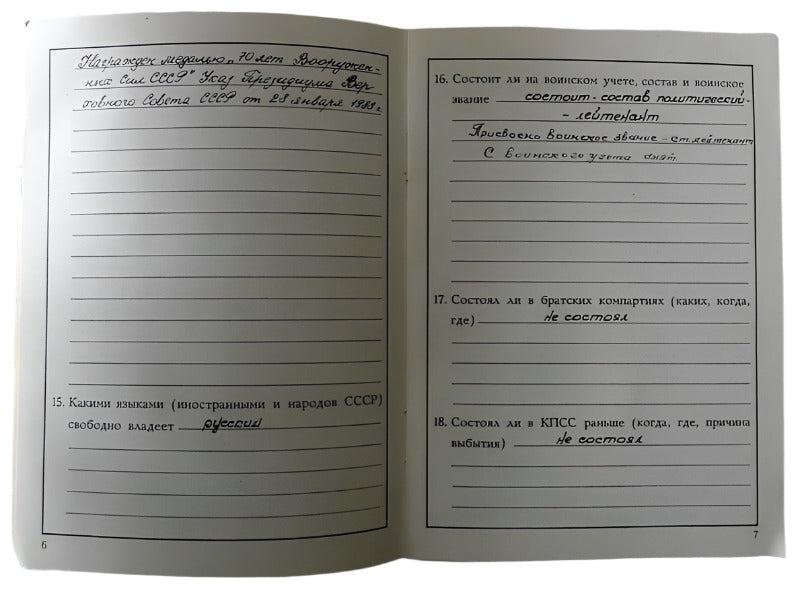 Награжден медалью „70 лет Вооружен-
ных Сил СССР" Указ Президиума Вер-
ховного Совета СССР от 28 января 1988 г.
15. Какими языками (иностранными и народов СССР)
свободно владеет русский
6
16. Состоит ли на воинском учете, состав и воинское
звание состоит - состав политический -
- лейтенант
Присвоено воинское звание - ст. лейтенант
С воинского учета снят
17. Состоял ли в братских компартиях (каких, когда,
где) не состоял
18. Состоял ли в КПСС раньше (когда, где, причина
выбытия) не состоял
7